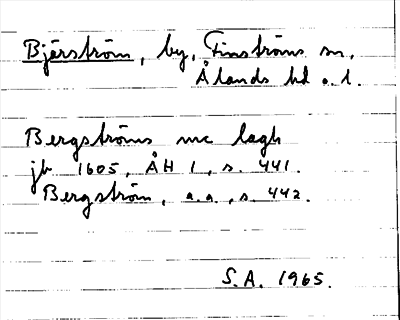 Bjärström, by, Finströms sn,
Ålands hd o. l.
Bergströms mc lagh
jb 1605, ÅH 1, s. 441.
Bergström, a.a., s. 442.
S.A. 1965.